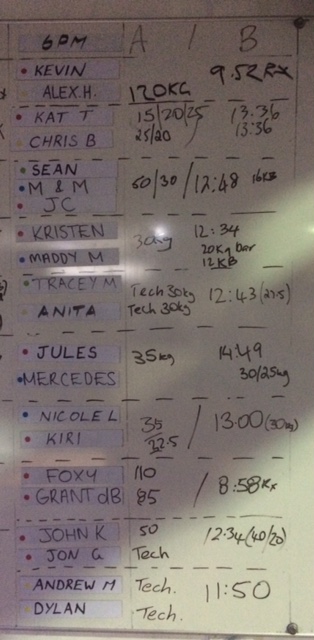 6PM A / B
KEVIN 9.52 RX
ALEX.H. 120KG
KAT T 15/20/25 / 13.36
CHRIS B 25/20 13:36
SEAN
M & M 50/30 / 12:48 16KB
JC
KRISTEN 30kg 12:34
20kg bar
MADDY M 12KB
TRACEY M Tech 30kg 12:43 (27.5)
ANITA Tech 30kg
JULES 35kg 14:49
MERCEDES 30/25kg
NICOLE L 35 / 13:00 (30kg)
KIRI 22.5
FOXY 110 / 8:58 Rx
GRANT dB 85
JOHN K 50 12:34 (40/20)
JON G Tech
ANDREW M Tech. 11:50
DYLAN Tech.